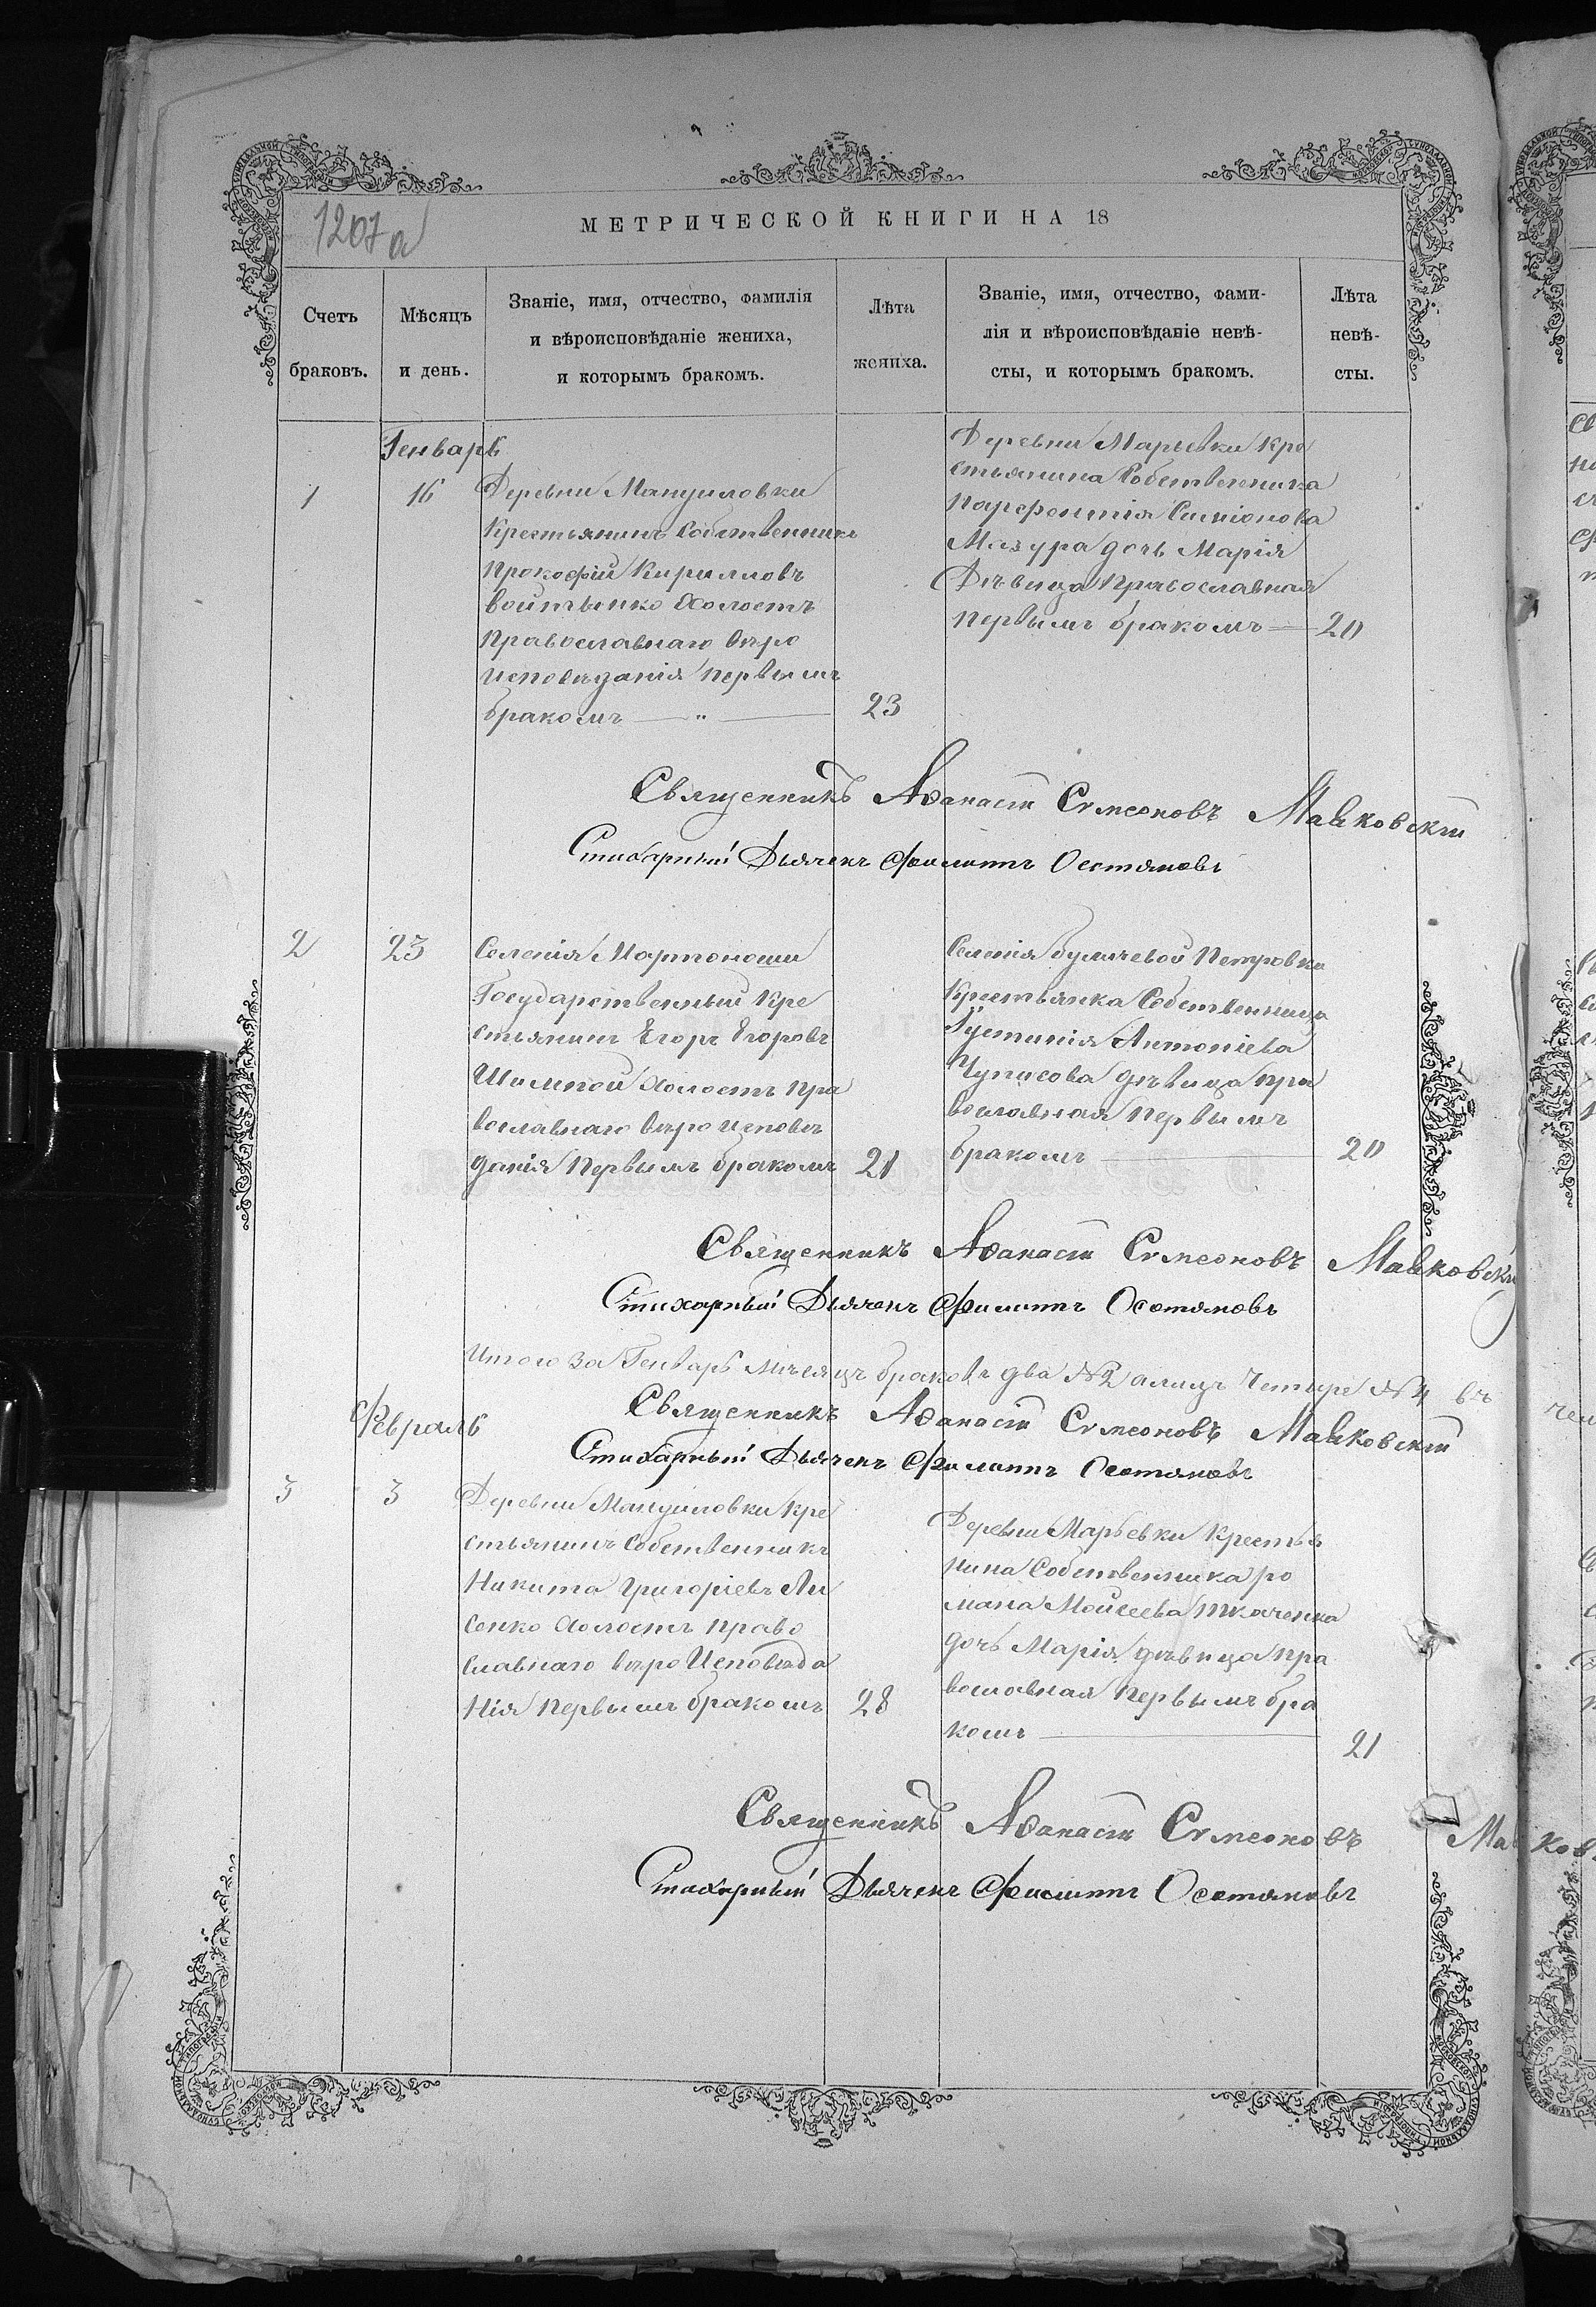 1207а
МЕТРИЧЕСКОЙ КНИГИ НА 18
Счетъ
браковъ.
Мѣсяцъ
и день.
Званіе, имя, отчество, фамилія
и вѣроисповѣданіе жениха,
и которымъ бракомъ.
Лѣта
жениха.
Званіе, имя, отчество, фами-
лія и вѣроисповѣданіе невѣ-
сты, и которымъ бракомъ.
Лѣта
невѣ-
сты.
Генварь
1
16
Деревни Мануиловки
Крестьянинъ Собственникъ
Прокофій Кирилловъ
Войтѣнко Холостъ
Православнаго вѣро
исповѣданія первымъ
бракомъ — „ —
23
Деревни Марьевки Кре
стьянина Собственника
Парфентія Симіонова
Мазура дочь Марія
Дѣвица Православная
первымъ бракомъ —
20
Священникъ Аѳанасій Сѵмеоновъ Маяковскій
Стихарный Дьячекъ Филиппъ Осстяновъ
2
23
Селенія Мартоноши
Государственный Кре
стьянинъ Егоръ Егоровъ
Холостъ пра
вославнаго вѣро исповѣ
данія Первымъ бракомъ
21
Селенія Петровки
Крестьянка Собственница
Іустинія Антоніева
дѣвица пра
вославная первымъ
бракомъ —
20
Священникъ Аѳанасій Сѵмеоновъ
Стихарный Дьячекъ Филиппъ Осстяновъ
Итого за Генварь мѣсяцъ браковъ два №2 а лицъ Четыре №4 въ
Священникъ Аѳанасій Сѵмеоновъ Маяковскій
Стихарный Дьячекъ Филиппъ Осстяновъ
Февраль
3
3
Деревни Мануиловки Кре
стьянинъ Собственникъ
Никита Григоріевъ Ли
сенко Холостъ право
славнаго вѣро Исповѣда
нія первымъ бракомъ
28
Деревни Марьевки Крестья
нина Собственника Ро
мана Моисеева Ткаченка
дочь Марія дѣвица пра
вославная первымъ бра
комъ —
21
Священникъ Аѳанасій Сѵмеоновъ
Стихарный Дьячекъ Филиппъ Осстяновъ